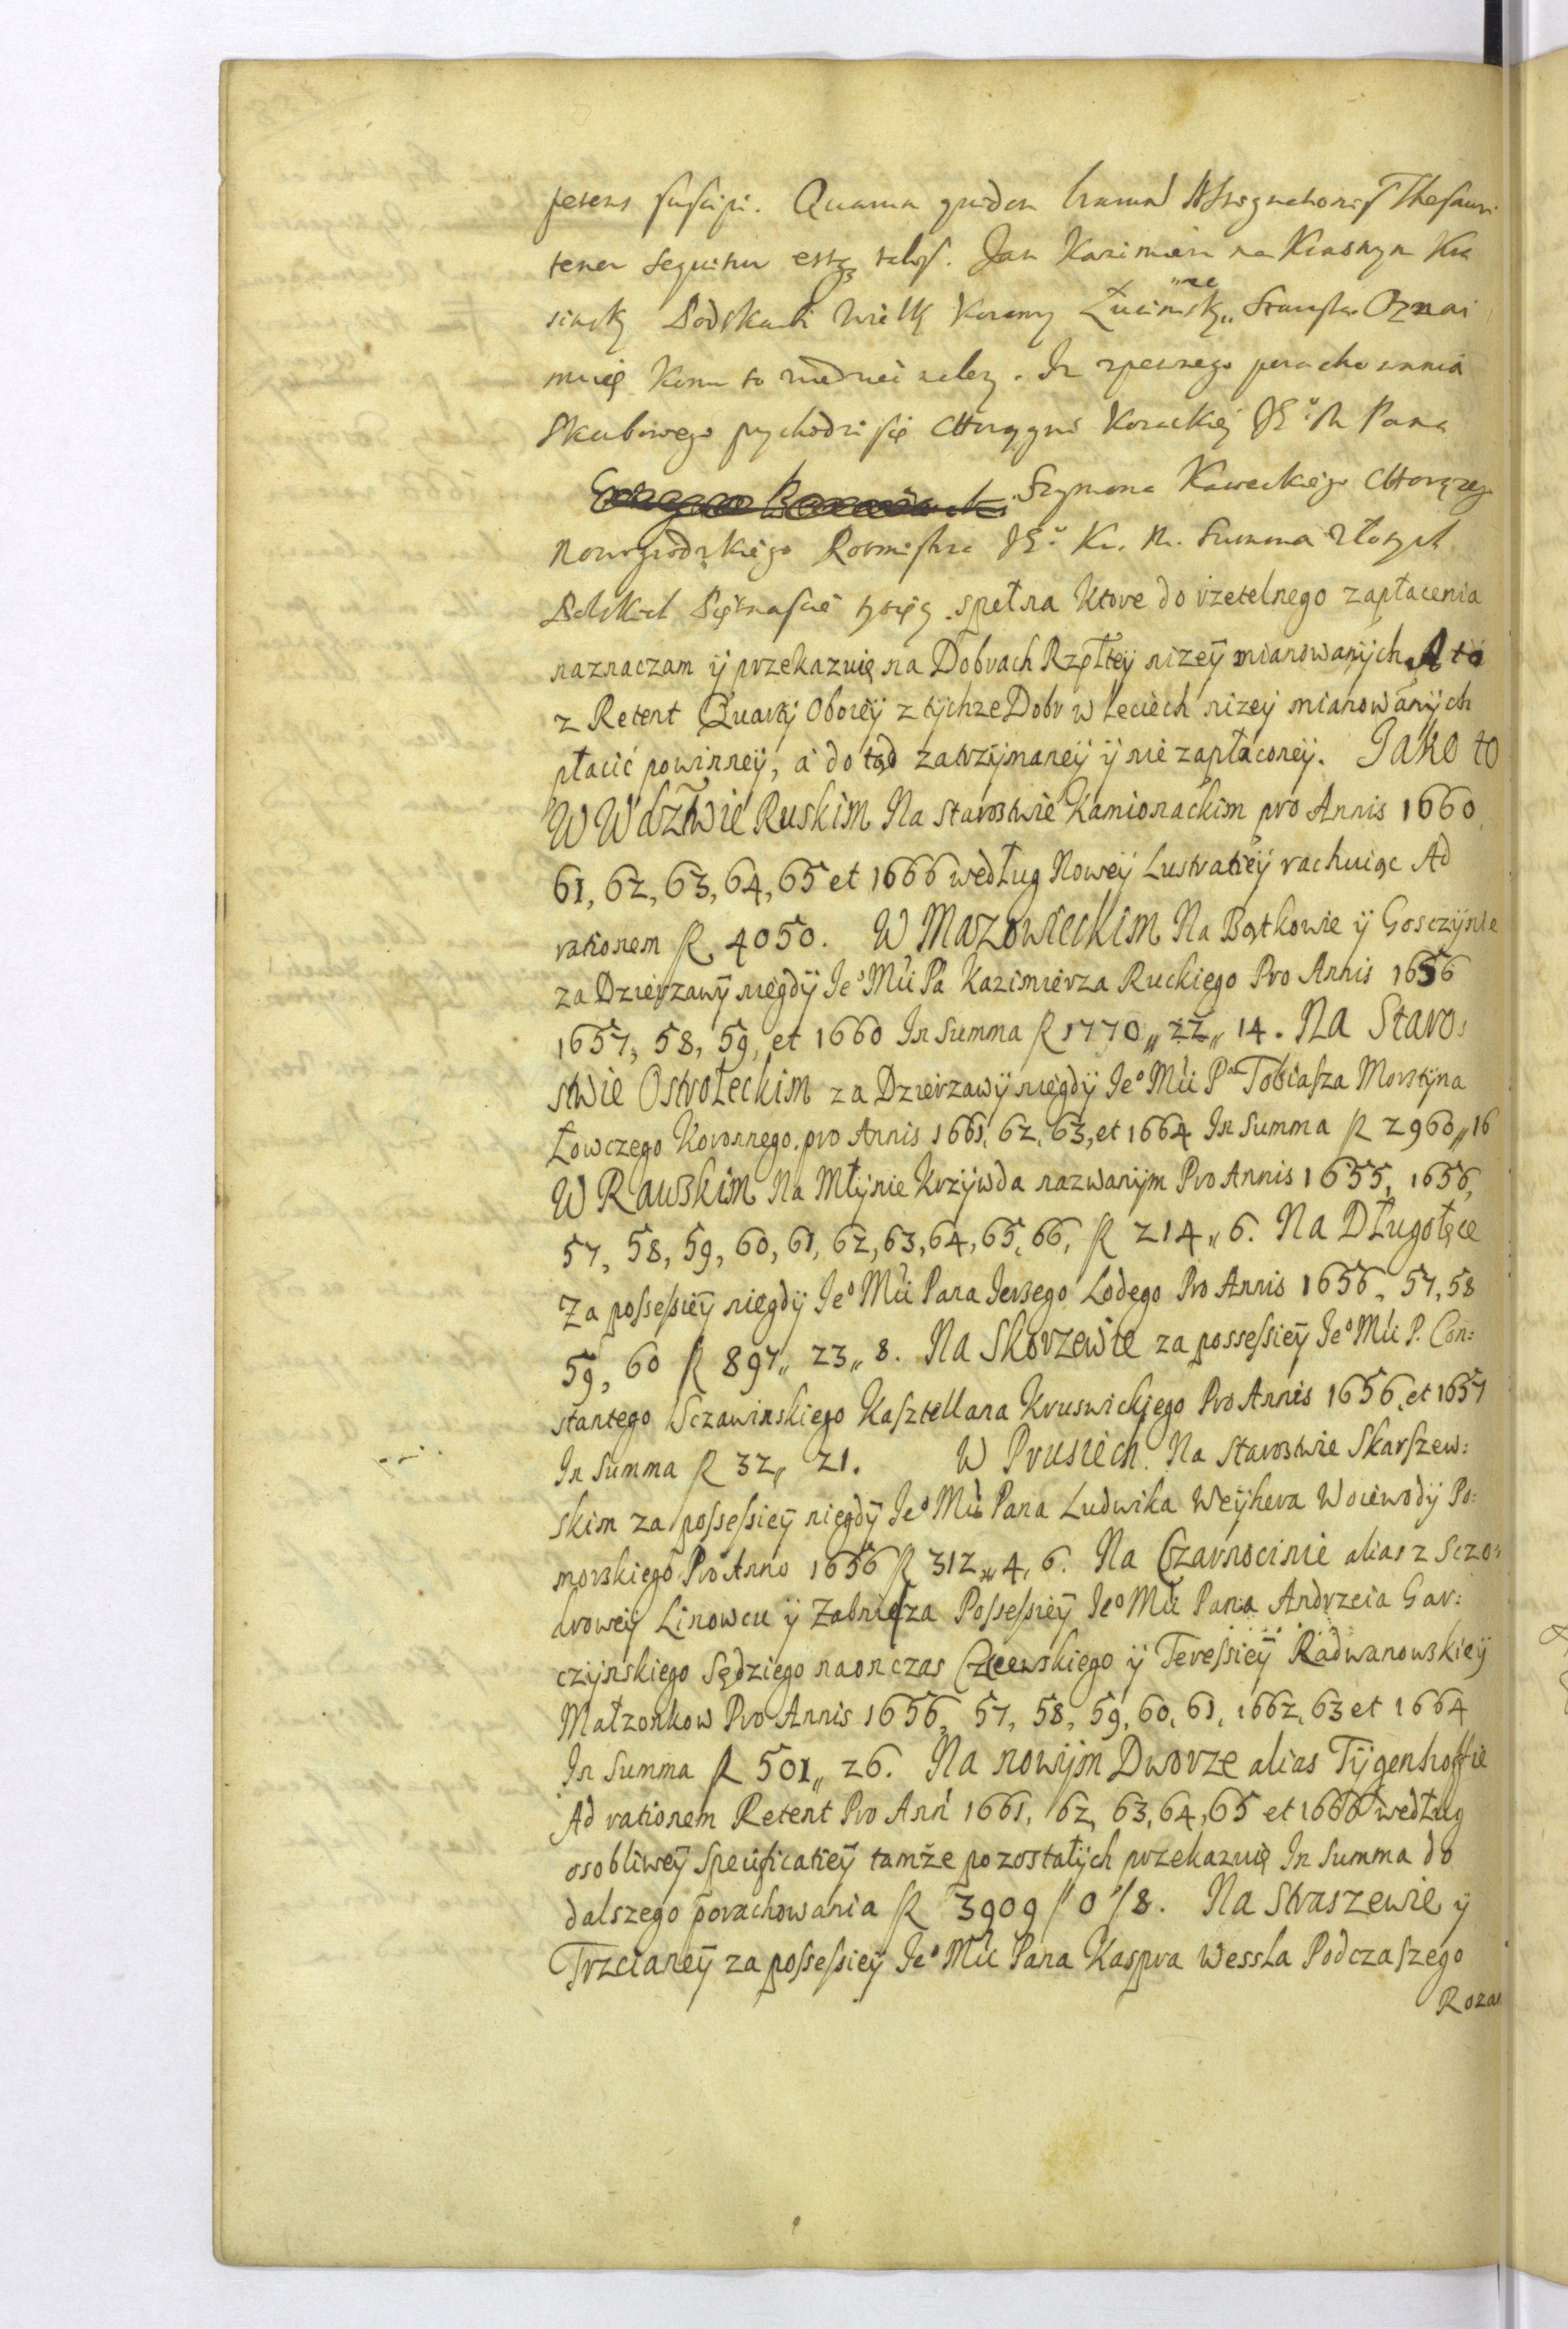 ferens suscipi. Quarum quidem literarum Assignationis Thesauri
tenor sequitur estq talis. Jan Kazimierz na Krasnym Kra
sinsky Podskarbi Wielky Koronny Łucinsky,, Starosta. Oznai
muię komu to wiedziec nalezy. Iz zpewnego porachowania
Skarbowego przychodzi się Chorągwi Kozackiej JE° M Pana
Szymona Kaweckiego Chorązego
Nowogrodzkiego Rotmistrza JE° Kr. M. Summa Złotych
Polskich Piętnascie tysięcy spełna Ktore do rzetelnego zapłacenia
naznaczam ij przekazuię na Dobrach Rzpłtej nizeÿ mianowanÿch, A to
z Retent Quartÿ Oboieÿ z tÿchze Dobr w leciech nizeÿ mianowanÿch
płacić powinneÿ, a do tąd zatrzÿmaneÿ ÿ nie zapłaconeÿ. Jako to
W Wdztwie Ruskim Na Starostwie Kamionackim pro Annis 1660
61, 62, 63, 64, 65 et 1666 według Noweÿ Lustratieÿ rachuiąc Ad
rationem R 4050. W Mazowieckim Na Bątkowie ÿ Gosczÿnie
za Dzierzawÿ niegdÿ Je° Mći Pa Kazimierza Ruckiego Pro Annis 1656
1657, 58, 59, et 1660 In Summa R 1770,, 22,, 14. Na Staro:
stwie Ostrołeckim za Dzierzawÿ niegdÿ Je° Mći Pna Tobiasza Morstÿna
Łowczego Koronnego. pro Annis 1661, 62, 63, et 1664 In Summa R 2960,, 16
W Rawskim Na Młÿnie Krzÿwda nazwanÿm Pro Annis 1655, 1656,
57, 58, 59, 60, 61, 62, 63, 64, 65, 66, R 214,, 6. Na Długołęce
Za possessieÿ niegdÿ Je° Mći Pana Jerzego Lodego Pro Annis 1656, 57, 58
59, 60 R 897,, 23,, 8. Na Skorzewie za possessieÿ Je° Mći P. Con:
stantego Sczawinskiego Kasztellana Kruswickiego Pro Annis 1656, et 1657
In Summa R 32,, 21. W Prusiech. Na Starostwie Skarszew:
skim za possessieÿ niegdÿ Je° Mći Pana Ludwika Weÿhera Woiewodÿ Po:
morskiego Pro Anno 1656 R 312,, 4, 6. Na Czarnocinie alias z Sczo:
droweÿ Linowcu ÿ Zabnie za Possessieÿ Je° Mći Pana Andrzeia Gar:
czÿnskiego Sędziego naonczas Czewskiego ÿ Teressieÿ Radwanowskieÿ
Małzonkow Pro Annis 1656, 57, 58, 59, 60, 61, 1662, 63 et 1664
In Summa R 501,, 26. Na nowÿm Dworze alias Tÿgenhoffie
Ad rationem Retent Pro Ann 1661, 62, 63, 64, 65 et 1666 według
osobliweÿ Specificatieÿ tamże pozostałÿch przekazuię In Summa do
dalszego porachowania R 3909 / 0 / 8. Na Straszewie ÿ
Trzcianeÿ za possessieÿ Je° Mći Pana Kaspra Wessla Podczaszego
Rozan